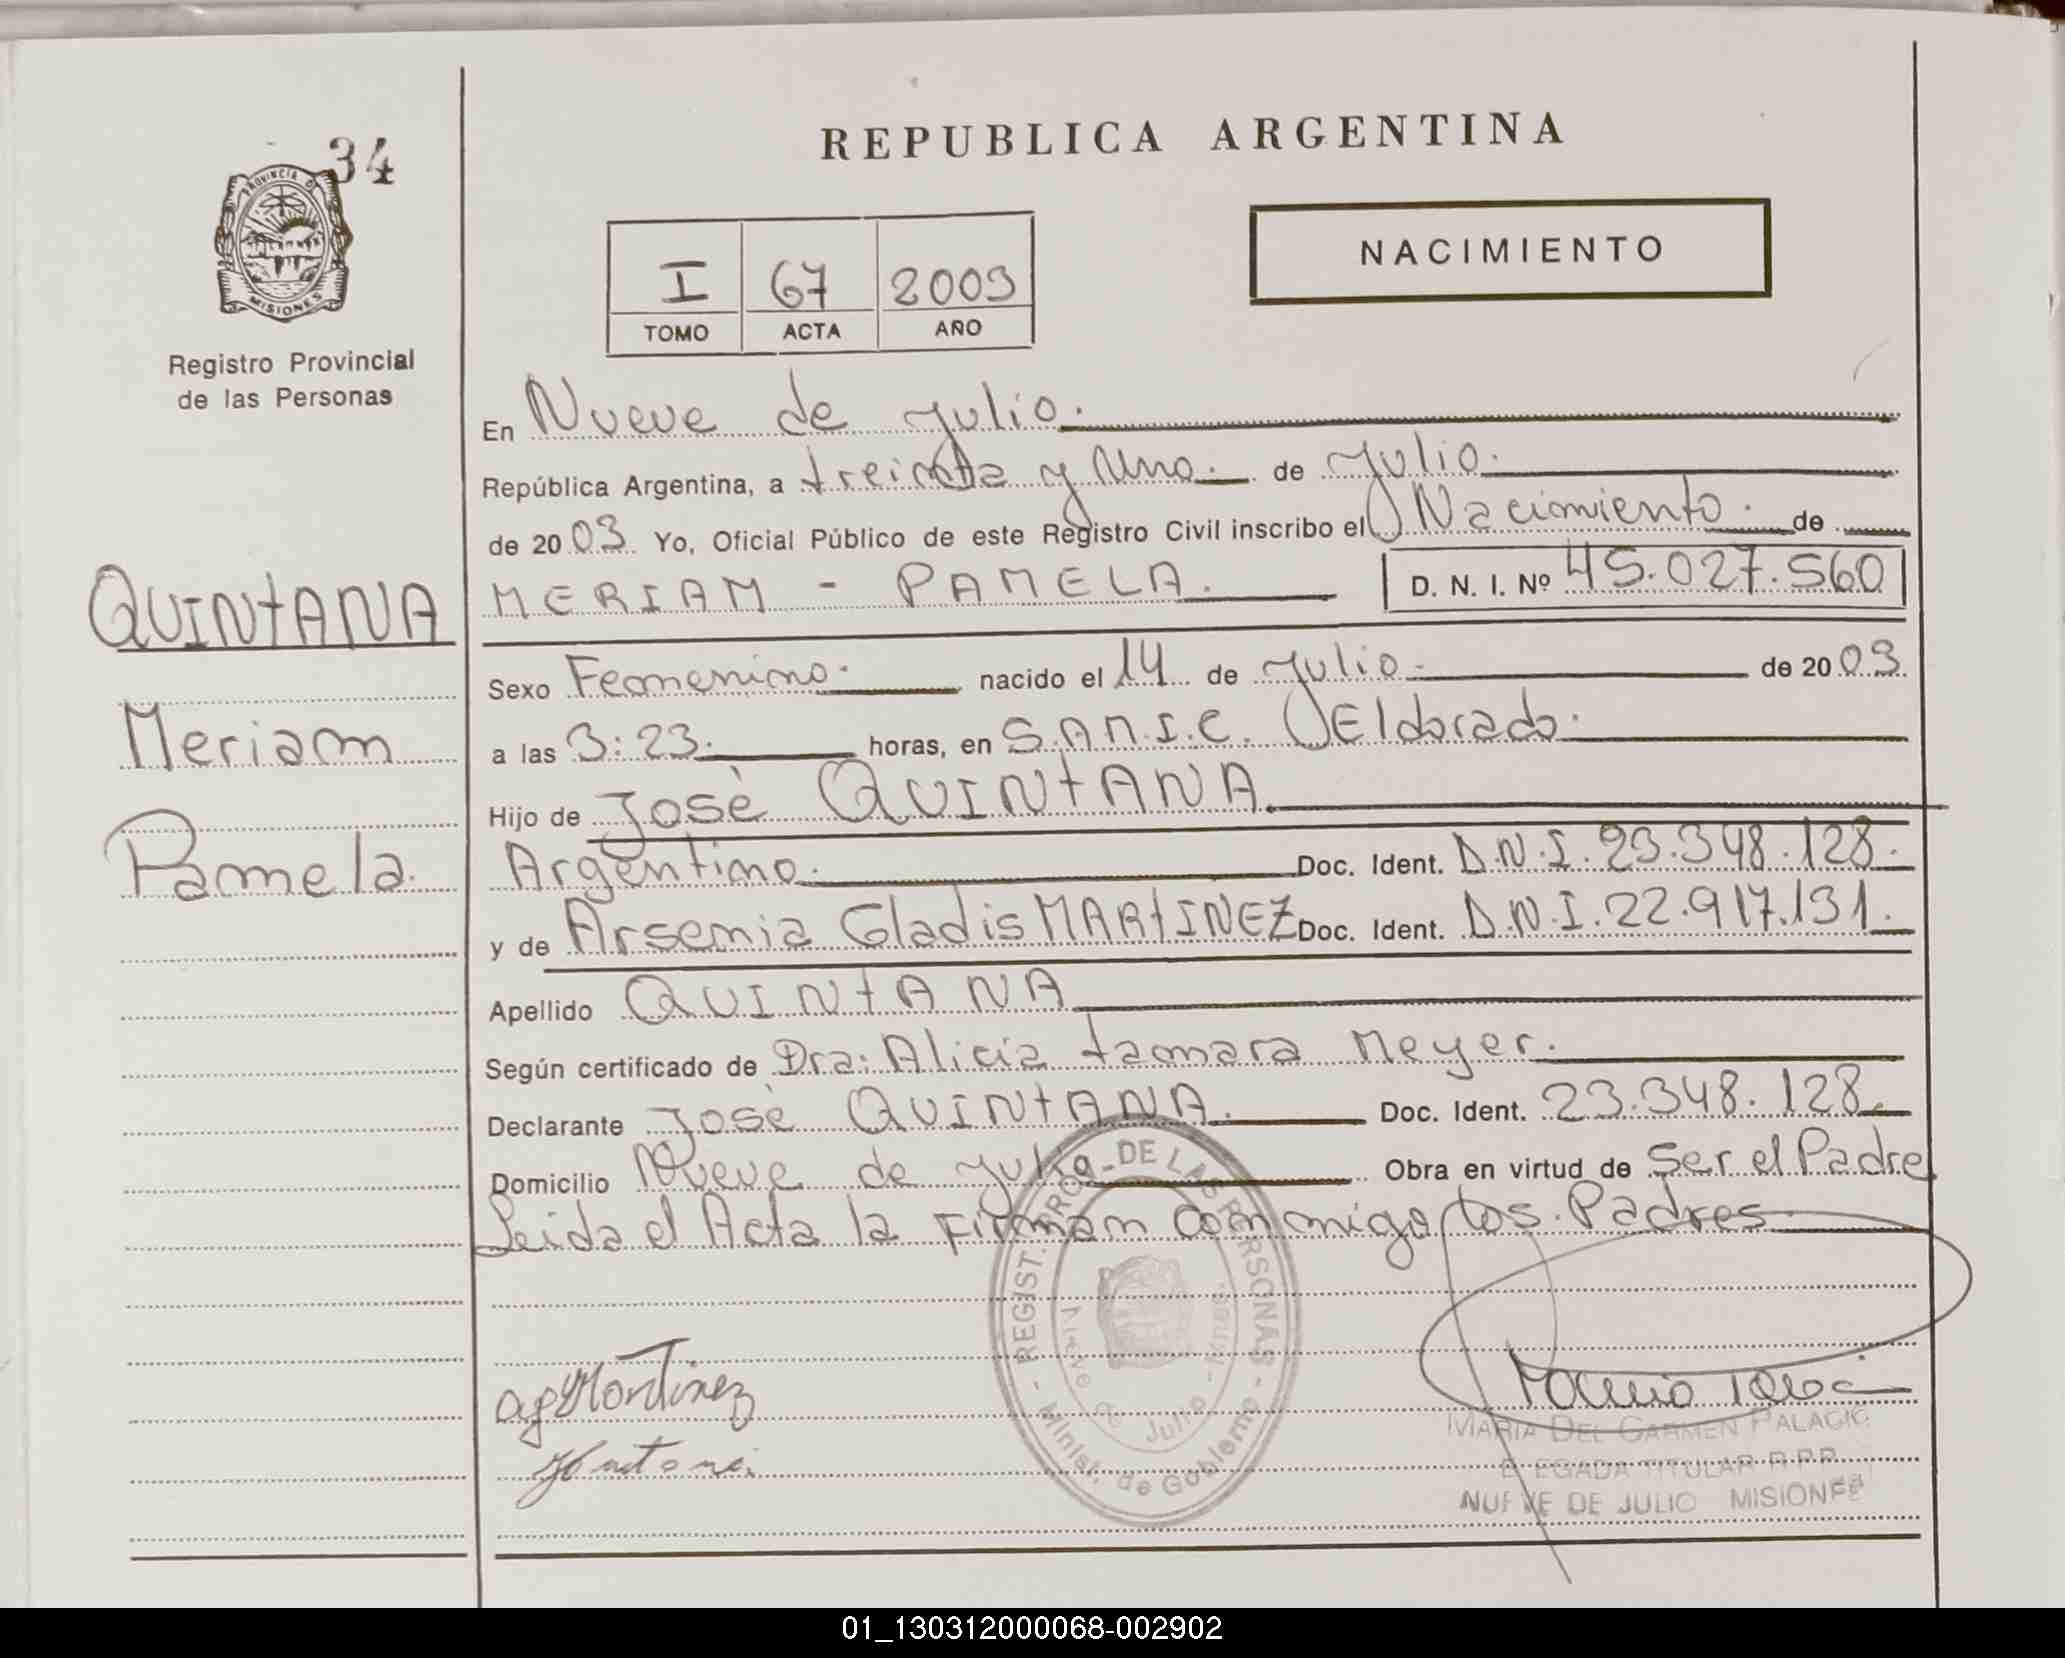 34
PROVINCIA DE
MISIONES
Registro Provincial
de las Personas
QUINTANA
Meriam
Pamela.
REPUBLICA ARGENTINA
I 67 2003
TOMO ACTA AÑO
NACIMIENTO
En Nueve de Julio.
República Argentina, a treinta y Uno. de Julio.
de 2003 Yo, Oficial Público de este Registro Civil inscribo el Nacimiento. de
MERIAM - PAMELA. D. N. I. Nº 45.027.560
Sexo Femenino. nacido el 14 de Julio. de 2003.
a las 3:23. horas, en S.A.M.I.C. Eldorado.
Hijo de Josè QUINTANA.
Argentino. Doc. Ident. D.N.I. 23.348.128.
y de Arsenia Gladis MARTINEZ Doc. Ident. D.N.I. 22.917.131.
Apellido QUINTANA
Según certificado de Dra. Alicia Tamara Meyer.
Declarante Josè QUINTANA. Doc. Ident. 23.348.128.
Domicilio Nueve de Julio Obra en virtud de Ser el Padre
Leida el Acta la Firman conmigo los Padres.
REGIST. PROV. DE LAS PERSONAS
Nueve de Julio - Mnes.
- Minist. de Gobierno -
Martinez
MARIA DEL CARMEN PALACIO
DELEGADA TITULAR R.P.P.
NUEVE DE JULIO MISIONES
01_130312000068-002902